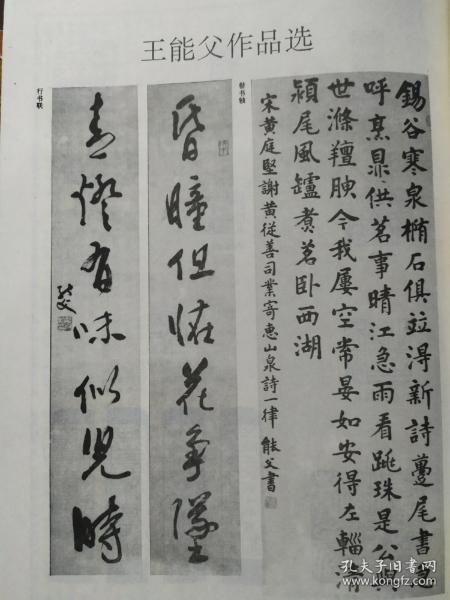 王能父作品选
楷书轴
錫谷寒泉橢石俱竝得新詩蠆尾書急
呼烹鼎供茗事晴江急雨看跳珠是公與
世滌羶腴令我屢空常晏如安得左轓清
潁尾風鑪煑茗卧西湖
宋黄庭堅謝黄從善司業寄惠山泉詩一律 能父書
行书联
昏瞳但怪花爭墜
青燈有味似兒時
能父
孔夫子旧书网